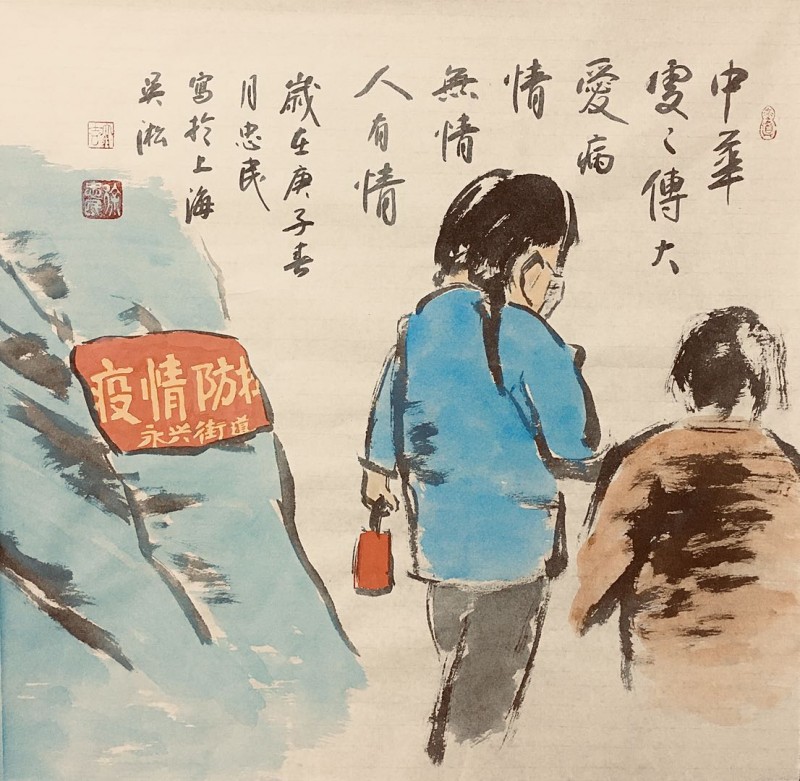 中華
處々傳大
愛病
情
無情
人有情
歲在庚子春
月忠民
寫於上海
吳淞
疫情防
永兴街道